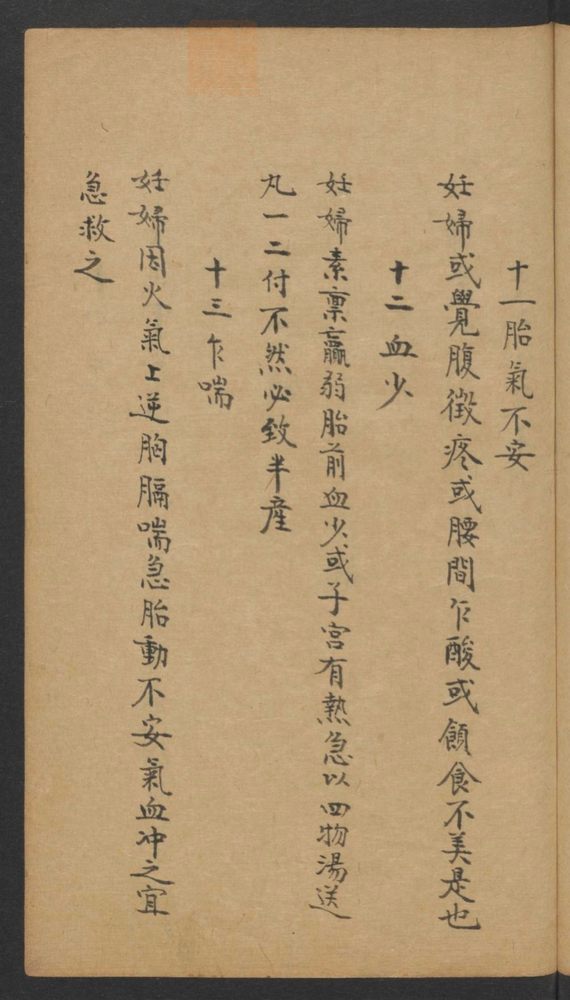 十一胎氣不安
妊婦或覺腹微疼或腰間乍酸或飲食不美是也
十二血少
妊婦素稟羸弱胎前血少或子宮有熱急以四物湯送
丸一二付不然必致半產
十三乍喘
妊婦因火氣上逆胸膈喘急胎動不安氣血冲之宜
急救之